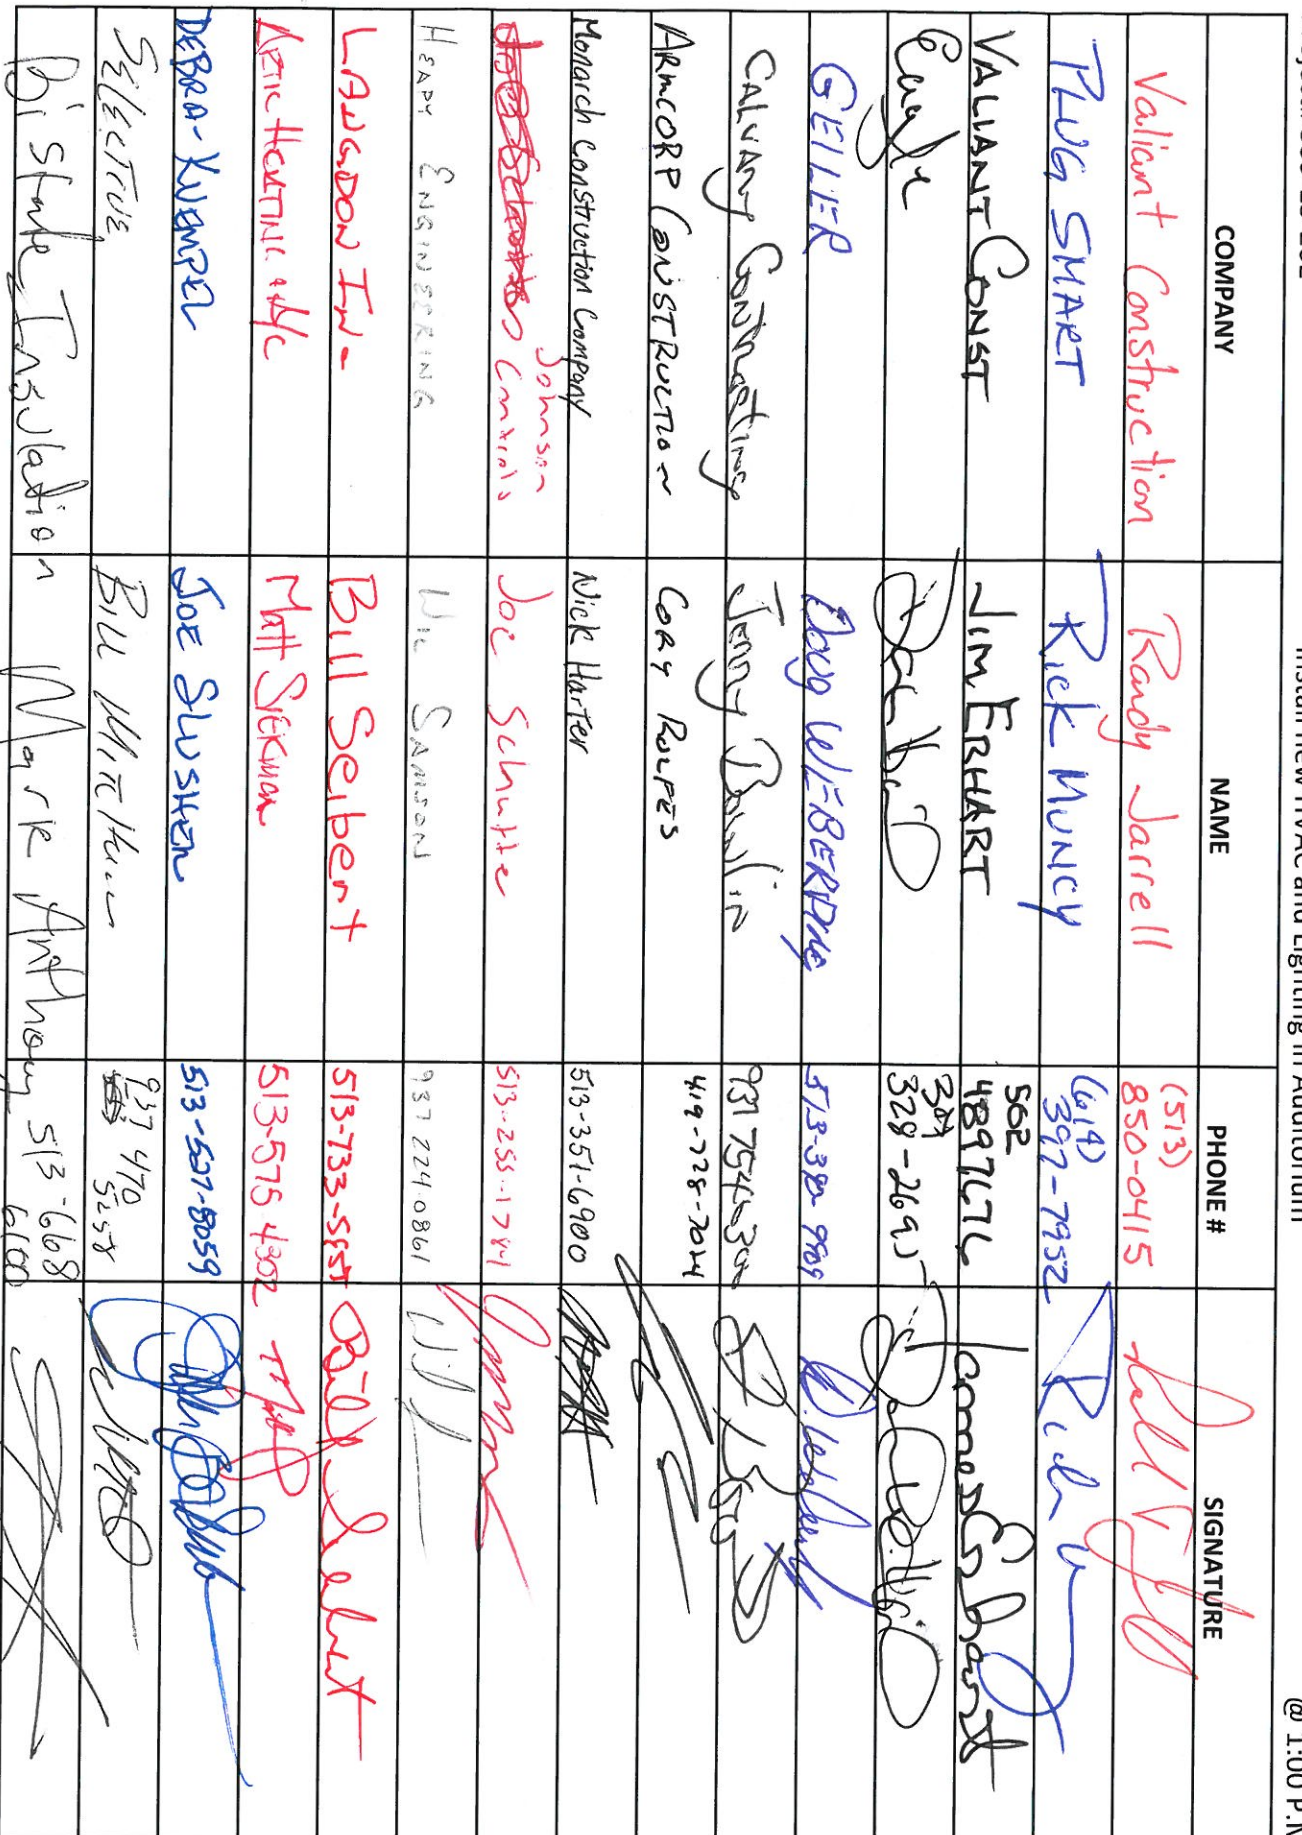 Install new HVAC and Lighting in Auditorium
@ 1:00 P.M
COMPANY NAME PHONE # SIGNATURE
Valiant Construction Randy Jarrell (513) 850-0415
PLUG SMART RICK MUNCY (614) 397-7952
VALIANT CONST JIM ERHART 502 4897676 James Erhart
Eagle
GEILER Doug WEBERDING
CALVARY Contracting Jenny Bowlin
ARMCORP CONSTRUCTION CORY ROLFES 419-728-7044
Monarch Construction Company Nick Harter 513-351-6900
Johnson Controls Joe Schutte 513-255-1784
HEAPY ENGINEERING WIL SAMSON 937 224 0861
LANGDON INC Bill Seibert 513-733-5955 Bill Seibert
ARTIC HEATING & A/C Matt SICKMAN 513-575 4302
DEBRA-KUEMPEL JOE SLUSHER 513-527-8059
SELECTIVE BILL 937 470 5258
Bi State Insulation Mark Anthony 513-668 6100